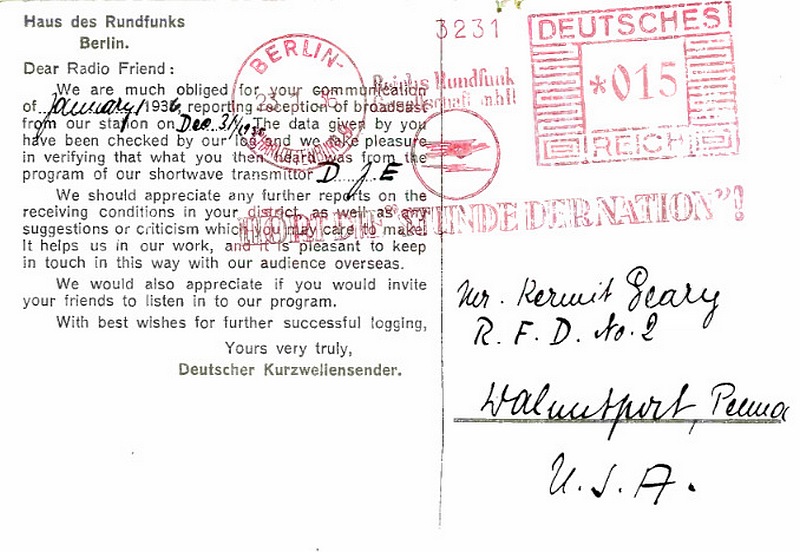 Haus des Rundfunks
Berlin.
Dear Radio Friend:
We are much obliged for your communication
of January 1936, reporting reception of broadcast
from our station on Dec. 31/ The data given by you
have been checked by our log and we take pleasure
in verifying that what you then heard was from the
program of our shortwave transmittor D J E
We should appreciate any further reports on the
receiving conditions in your district, as well as any
suggestions or criticism which you may care to make.
It helps us in our work, and it is pleasant to keep
in touch in this way with our audience overseas.
We would also appreciate if you would invite
your friends to listen in to our program.
With best wishes for further successful logging,
Yours very truly,
Deutscher Kurzwellensender.
BERLIN-
3231
Reichs Rundfunk
DEUTSCHES
*015
REICH
HÖRT DIE "STUNDE DER NATION"!
Mr. Kermit Geary
R. F. D. No. 2
Walnutport, Penna
U. S. A.